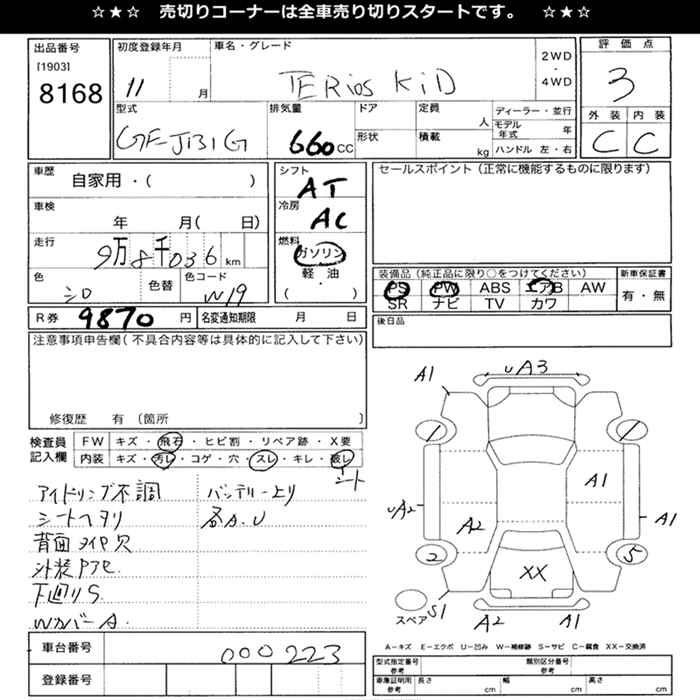 ☆★☆ 売切りコーナーは全車売り切りスタートです。 ☆★☆
出品番号
[1903]
8168
初度登録年月
11 月
車名・グレード
TERios KiD
2WD
・
4WD
評価点
3
外装 内装
C C
型式
GF-J131G
排気量
660 CC
ドア
形状
定員
人
積載
kg
ディーラー・並行
モデル年式 年
ハンドル 左・右
車歴
自家用・( )
車検
年 月( 日)
走行
9万8千036 km
色
シロ
色替
色コード
W19
シフト
AT
冷房
AC
燃料
ガソリン
軽・油
( )
セールスポイント(正常に機能するものに限ります)
装備品(純正品に限り○をつけてください)
PS PW ABS エアB AW
SR ナビ TV カワ
新車保証書
有・無
R券 9870 円
名変通知期限 月 日
後日品
注意事項申告欄(不具合内容等は具体的に記入して下さい)
修復歴 有 (箇所 )
検査員
記入欄
FW キズ・飛石・ヒビ割・リペア跡・X要
内装 キズ・汚レ・コゲ・穴・スレ・キレ・破レ
シート
アイドリング不調
バッテリー上り
シートヘタリ
各A.U
背面タイヤ欠
外装アセ
下回りS
WカバーA
車台番号
000223
登録番号
A1
UA3
A1
UA2
A2
A1
2
5
XX
スペア
S1
A2
A1
A-キズ E-エクボ U-凹み W-補修跡 S-サビ C-腐食 XX-交換済
型式指定番号
参考
類別区分番号
参考
車庫証明用
参考
長さ cm
幅 cm
高さ cm